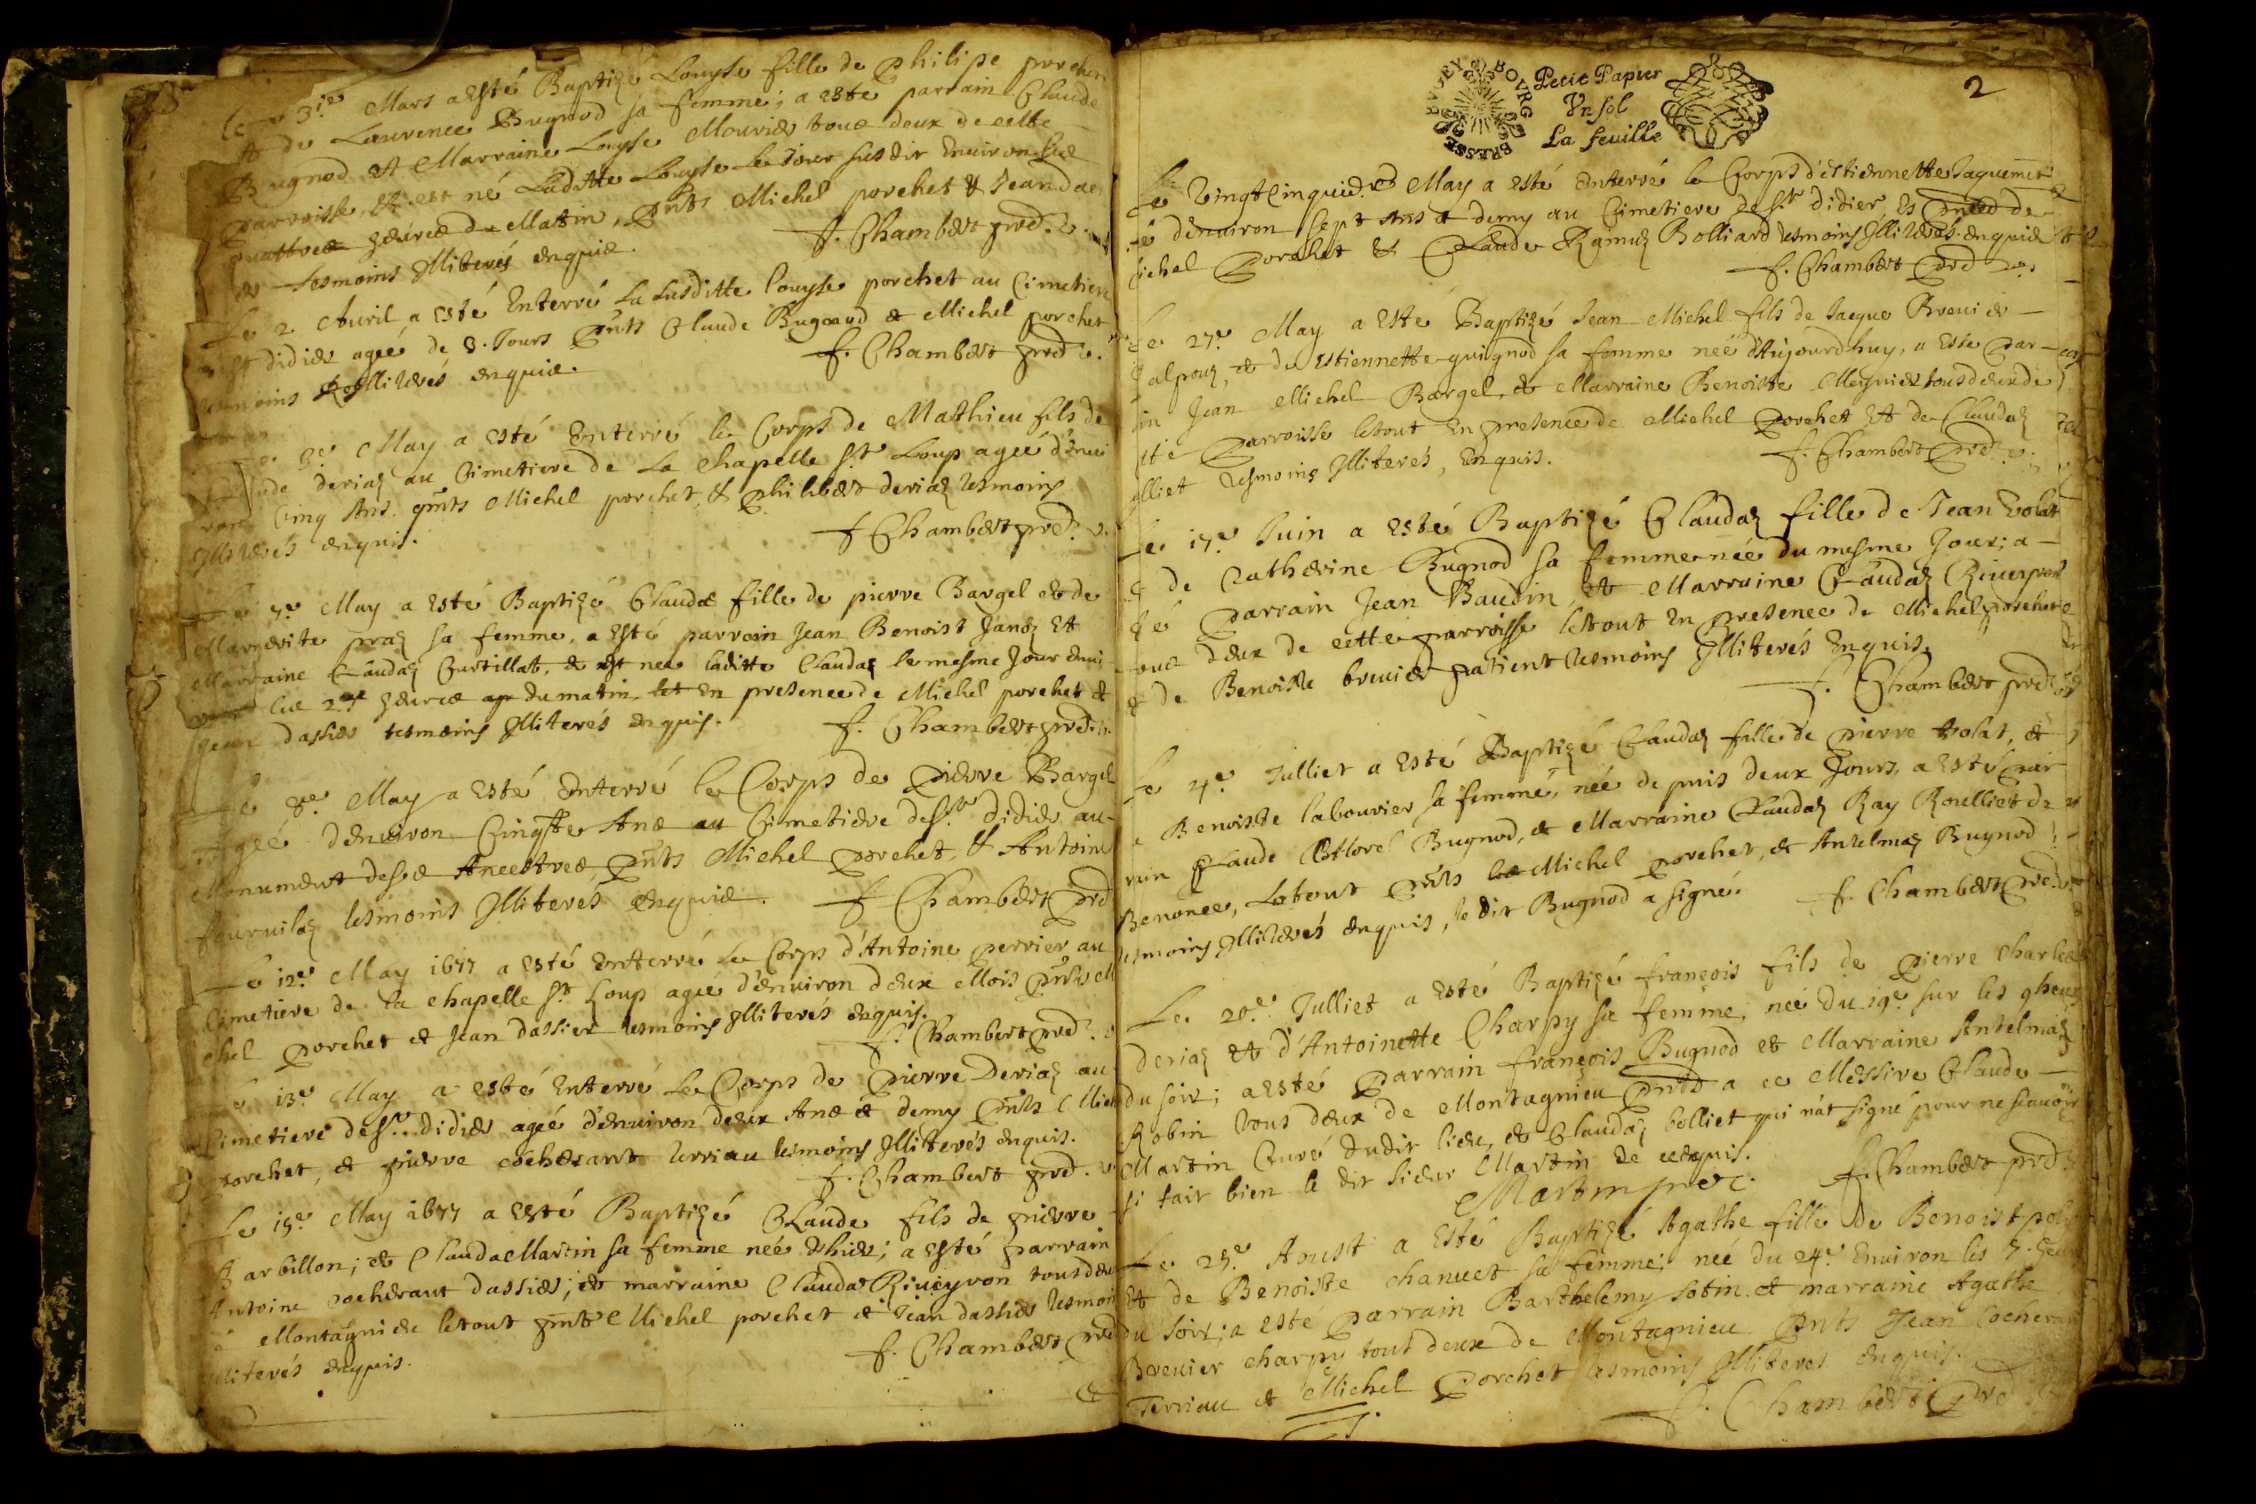 Le 31e Mars a esté Baptizé Louyse fille de Philipe porchet
et de Laurence Bugnod sa femme; a esté parrain Claude
Bugnod et Marraine Louyse Mourier tous deux de cette
parroisse, et est né Laditte Louyse le jour susdit environ les
quattres heures du Matin, pnts Michel porchet & Jean das
tesmoins Illiterés enquis.
f. Chambert prd. v.
Le 2 Auril a esté Enterré La susditte louyse porchet au Cimetiere
St didier agée de 3. Jours pnts Claude Bugnard & Michel porchet
tesmoins Illiterés enquis.
f. Chambert prd v.
3e May a esté Enterré le Corps de Mathieu fils de
deriaz au Cimetiere de La Chapelle St Loup agée d'enui
ron Cinq Ans. pnts Michel porchet, & Philibert deriaz tesmoins
Illiterés enquis.
f Chambert prd. v.
Le 7e May a esté Baptizé Claudaz fille de pierre Bargel et de
Marguerite praz sa femme, a esté parrain Jean Benoist Janez et
Marraine Claudaz Curtillat, & est née laditte Claudaz le mesme Jour enui
heures du matin, en presence de Michel porchet &
Jean dassier tesmoins Illiterés enquis.
f. Chambert prd. v.
Le 8e May a esté Enterré le Corps de pierre Bargel
agée d'enuiron Cinqte Ans au Cimetiere de St didier au
Monument de ses Ancestres, pnts Michel porchet, & Antoine
tesmoins Illiterés enquis.
f Chambert prd
Le 12e May 1677 a esté Enterré Le Corps d'Antoine perrier au
Cimetiere de La Chapelle St Loup agée d'enuiron deux Mois pnts Mi
chel porchet et Jean dassier tesmoins Illiterés enquis.
f. Chambert prd. v
Le 13e May a esté Enterré Le Corps de pierre Deriaz au
Cimetiere de St. didier agée d'enuiron deux Ans & demy pnts Michel
porchet, et pierre cocherant terriau tesmoins Illiterés enquis.
f. Chambert prd. v
Le 15e May 1677 a esté Baptizé Claude fils de pierre
Barbillon; et Clauda Martin sa femme née d'hier; a esté parrain
Antoine cocherant dassier; et marraine Clauda Riueyron tous deux
a Montagnieu le tout pnts Michel porchet et Jean dassier tesmoi
Illiterés enquis.
f. Chambert prd
BOURG BRESSE BUGEY
Petit Papier
Un sol
La feuille
2
Le Vingt Cinquie. May a esté Enterré le Corps d'Estiennette Jaquemet
d'enuiron sept Ans & demy au Cimetiere de St didier
Michel porchet & Claude Ramuz Bolliard tesmoins Illiterés enquis
f. Chambert prd v.
Le 27e May a esté Baptizé Jean Michel fils de Jaque Breuier
et de Estiennette guignod sa femme née d'Aujourd'huy, a esté par
rin Jean Michel Bargel, & Marraine Benoiste Meynier tous deux de
tte Parroisse le tout en presence de Michel porchet et de Claudaz
olliet tesmoins Illiterés, Enquis.
f. Chambert prd. v.
Le 17e Juin a esté Baptizé Claudaz fille de Jean Volat
& de Catherine Bugnod sa femme née du mesme Jour; a
té parrain Jean Baudin, et Marraine Claudaz Riueyron
tous deux de cette parroisse le tout en presence de Michel porchet
& de Benoiste breuier patient tesmoins Illiterés Enquis.
f. Chambert prd
Le 4e Julliet a esté Baptizé Claudaz fille de pierre Volat, et
de Benoiste labourier sa femme, née depuis deux Jours, a esté par
rain Claude Bugnod, et Marraine Claudaz Ray Roulliet de
Benonce, Le tout pnts Michel porchet, et Antelmaz Bugnod
tesmoins Illiterés enquis, le dit Bugnod a signé.
f. Chambert prd. v.
Le 20e Julliet a esté Baptizé françois fils de pierre Charles
deriaz et d'Antoinette Charpy sa femme, née du 19e sur les 9 heures
du soir; a esté parrain françois Bugnod et Marraine Antelmaz
Robin tous deux de Montagnieu pnts a ce Messire Claude
Martin Curé dudit lieu, et Claudaz bolliet qui n'at signé pour ne scauoir
si fait bien le dit sieur Martin de ce enquis.
Martin ptre.
f. Chambert prd
Le 25e Aoust a esté Baptizé Agathe fille de Benoist
et de Benoiste chanuet sa femme; née du 24e enuiron les 5. heures
du soir; a esté parrain Barthelemy sotin et marraine Agathe
Breuier charpy tous deux de Montagnieu. pnts Jean Cocheran
Terriau et Michel porchet tesmoins Illiteres enquis.
f. Chambert prd